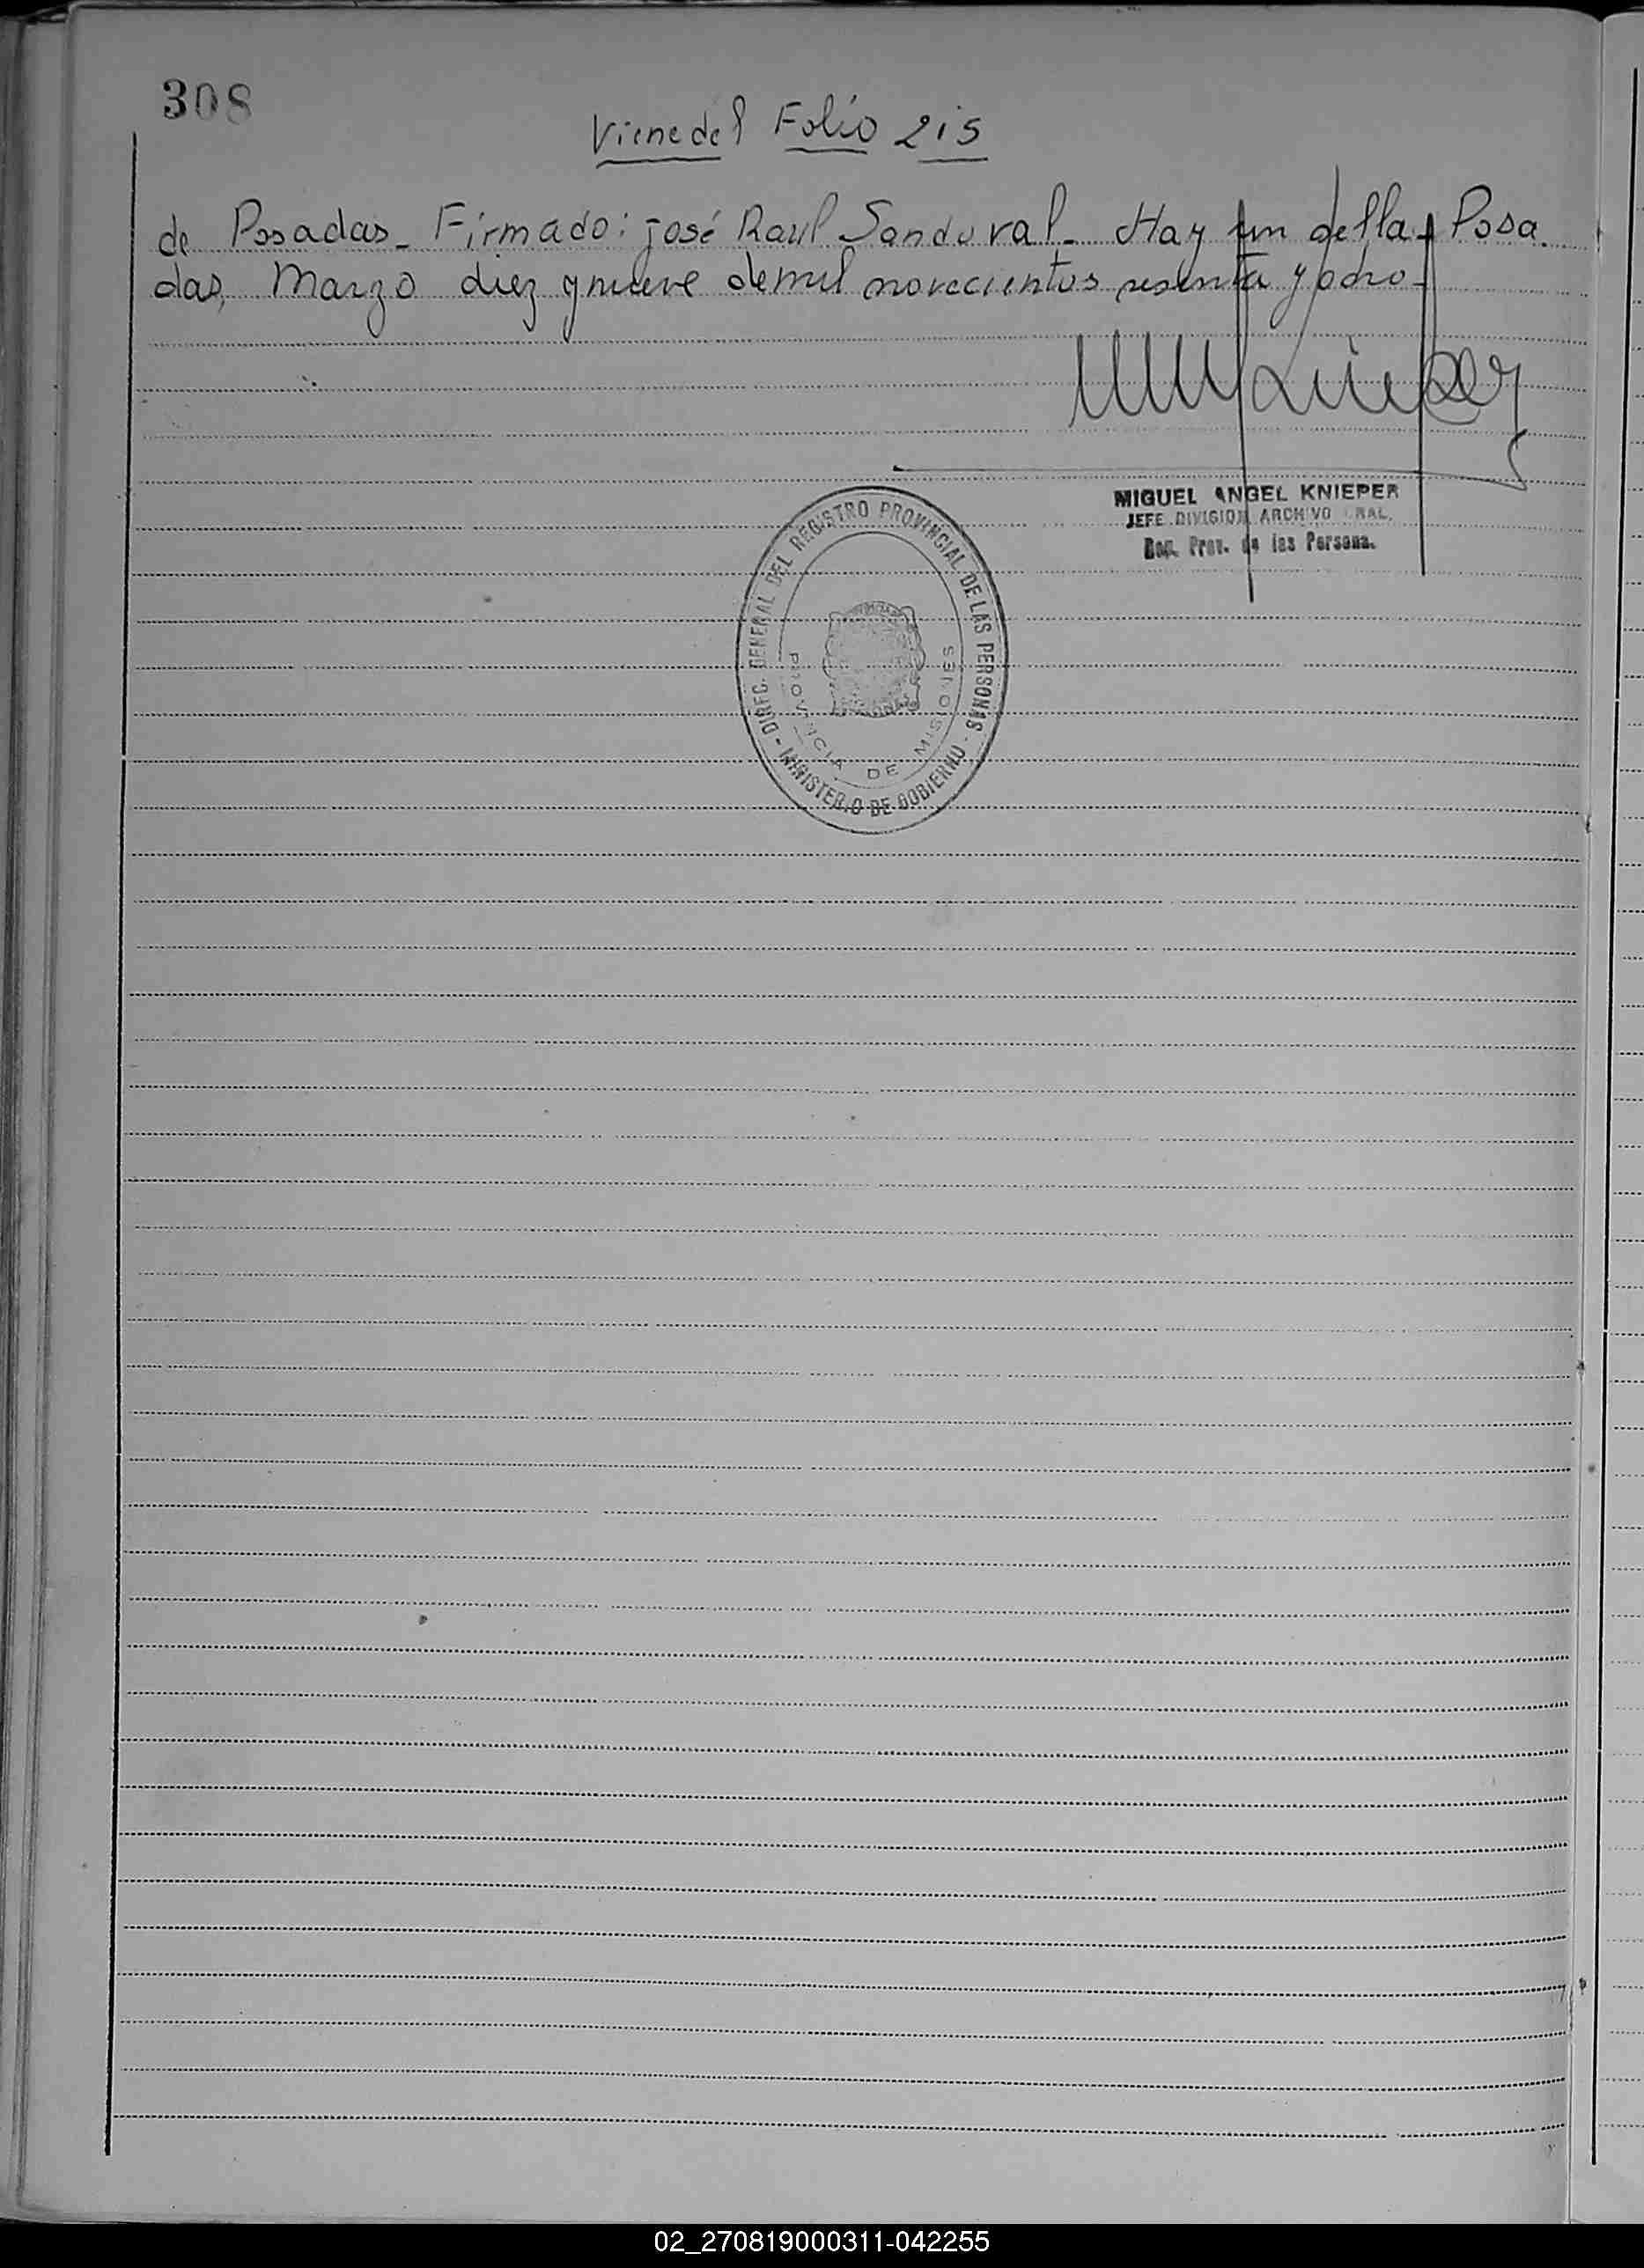 308
Viene del Folio 215
de Posadas_ Firmado: José Raul Sandoval_ Hay un sello_ Posa
das, Marzo diez y nueve de mil novecientos sesenta y ocho_
MIGUEL ANGEL KNIEPER
JEFE DIVISION ARCHIVO RAL.
Prov. de las Persona.
DIREC. GENERAL DEL REGISTRO PROVINCIAL DE LAS PERSONAS - MINISTERIO DE GOBIERNO -
PROVINCIA DE MISIONES
02_270819000311-042255